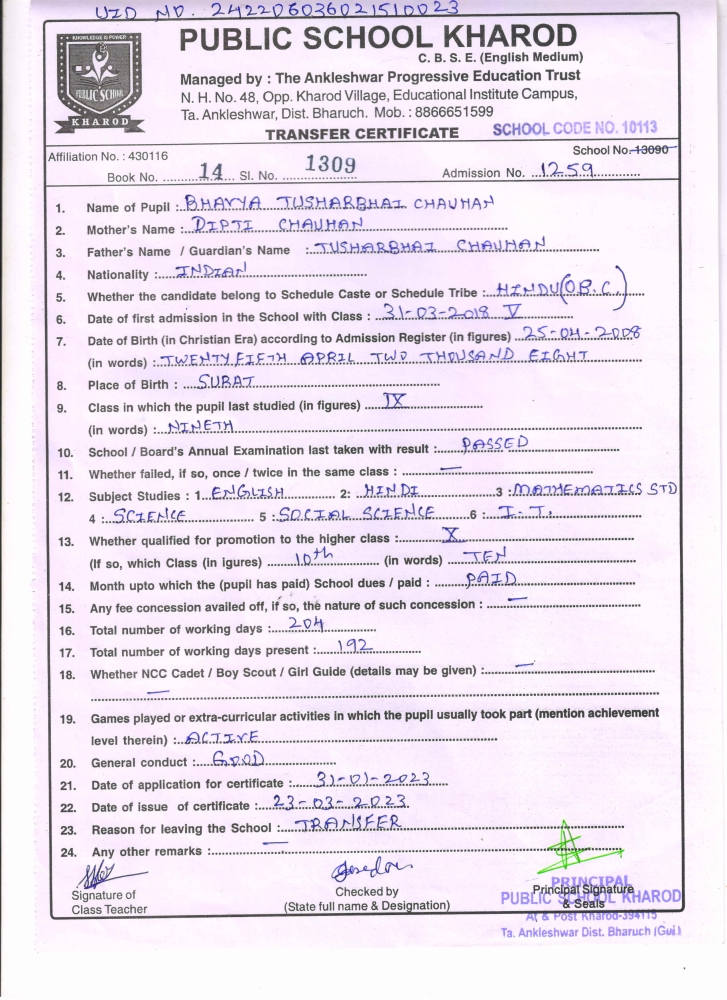 UID NO. 242206036021510023
KNOWLEDGE IS POWER
PUBLIC SCHOOL
KHAROD
PUBLIC SCHOOL KHAROD
C. B. S. E. (English Medium)
Managed by : The Ankleshwar Progressive Education Trust
N. H. No. 48, Opp. Kharod Village, Educational Institute Campus,
Ta. Ankleshwar, Dist. Bharuch. Mob. : 8866651599
TRANSFER CERTIFICATE SCHOOL CODE NO. 10113
Affiliation No. : 430116 School No. 13090
Book No. 14 Sl. No. 1309 Admission No. 1259
1. Name of Pupil : BHAVYA TUSHARBHAI CHAUHAN
2. Mother's Name : DIPTI CHAUHAN
3. Father's Name / Guardian's Name : TUSHARBHAI CHAUHAN
4. Nationality : INDIAN
5. Whether the candidate belong to Schedule Caste or Schedule Tribe : HINDU (O.B.C.)
6. Date of first admission in the School with Class : 31-03-2018 V
7. Date of Birth (in Christian Era) according to Admission Register (in figures) 25-04-2008
(in words) : TWENTY FIFTH APRIL TWO THOUSAND EIGHT
8. Place of Birth : SURAT
9. Class in which the pupil last studied (in figures) IX
(in words) : NINETH
10. School / Board's Annual Examination last taken with result : PASSED
11. Whether failed, if so, once / twice in the same class : —
12. Subject Studies : 1. ENGLISH 2: HINDI 3 : MATHEMATICS STD
4 : SCIENCE 5 : SOCIAL SCIENCE 6 : I. T.
13. Whether qualified for promotion to the higher class : X
(If so, which Class (in igures) 10th (in words) TEN
14. Month upto which the (pupil has paid) School dues / paid : PAID
15. Any fee concession availed off, if so, the nature of such concession : —
16. Total number of working days : 204
17. Total number of working days present : 192
18. Whether NCC Cadet / Boy Scout / Girl Guide (details may be given) : —
—
19. Games played or extra-curricular activities in which the pupil usually took part (mention achievement
level therein) : ACTIVE
20. General conduct : GOOD
21. Date of application for certificate : 31-01-2023
22. Date of issue of certificate : 23-03-2023
23. Reason for leaving the School : TRANSFER
24. Any other remarks : —
Signature of
Class Teacher
Checked by
(State full name & Designation)
Principal Signature
& Seals
PRINCIPAL
PUBLIC SCHOOL KHAROD
At & Post Kharod-394115
Ta. Ankleshwar Dist. Bharuch (Guj.)